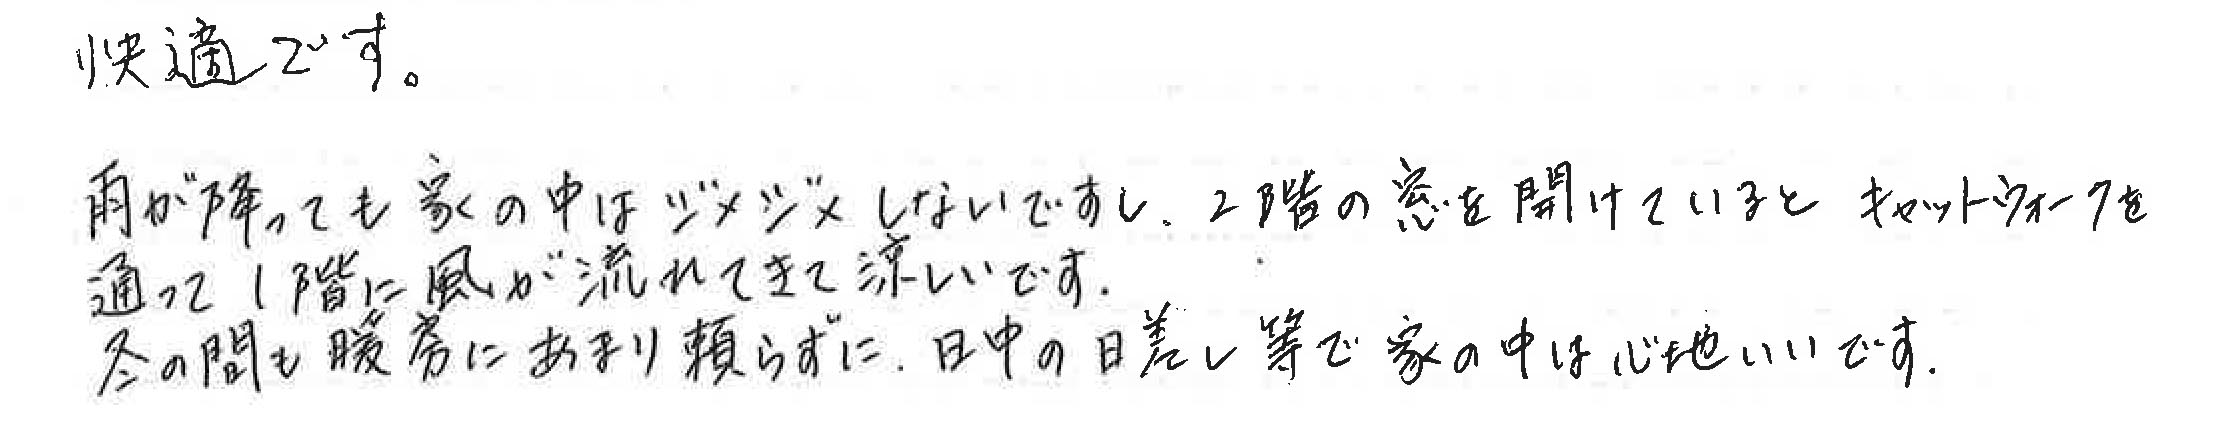 快適です。
雨が降っても家の中はジメジメしないですし、2階の窓を開けているとキャットウォークを
通って1階に風が流れてきて涼しいです。
冬の間も暖房にあまり頼らずに、日中の日差し等で家の中は心地いいです。